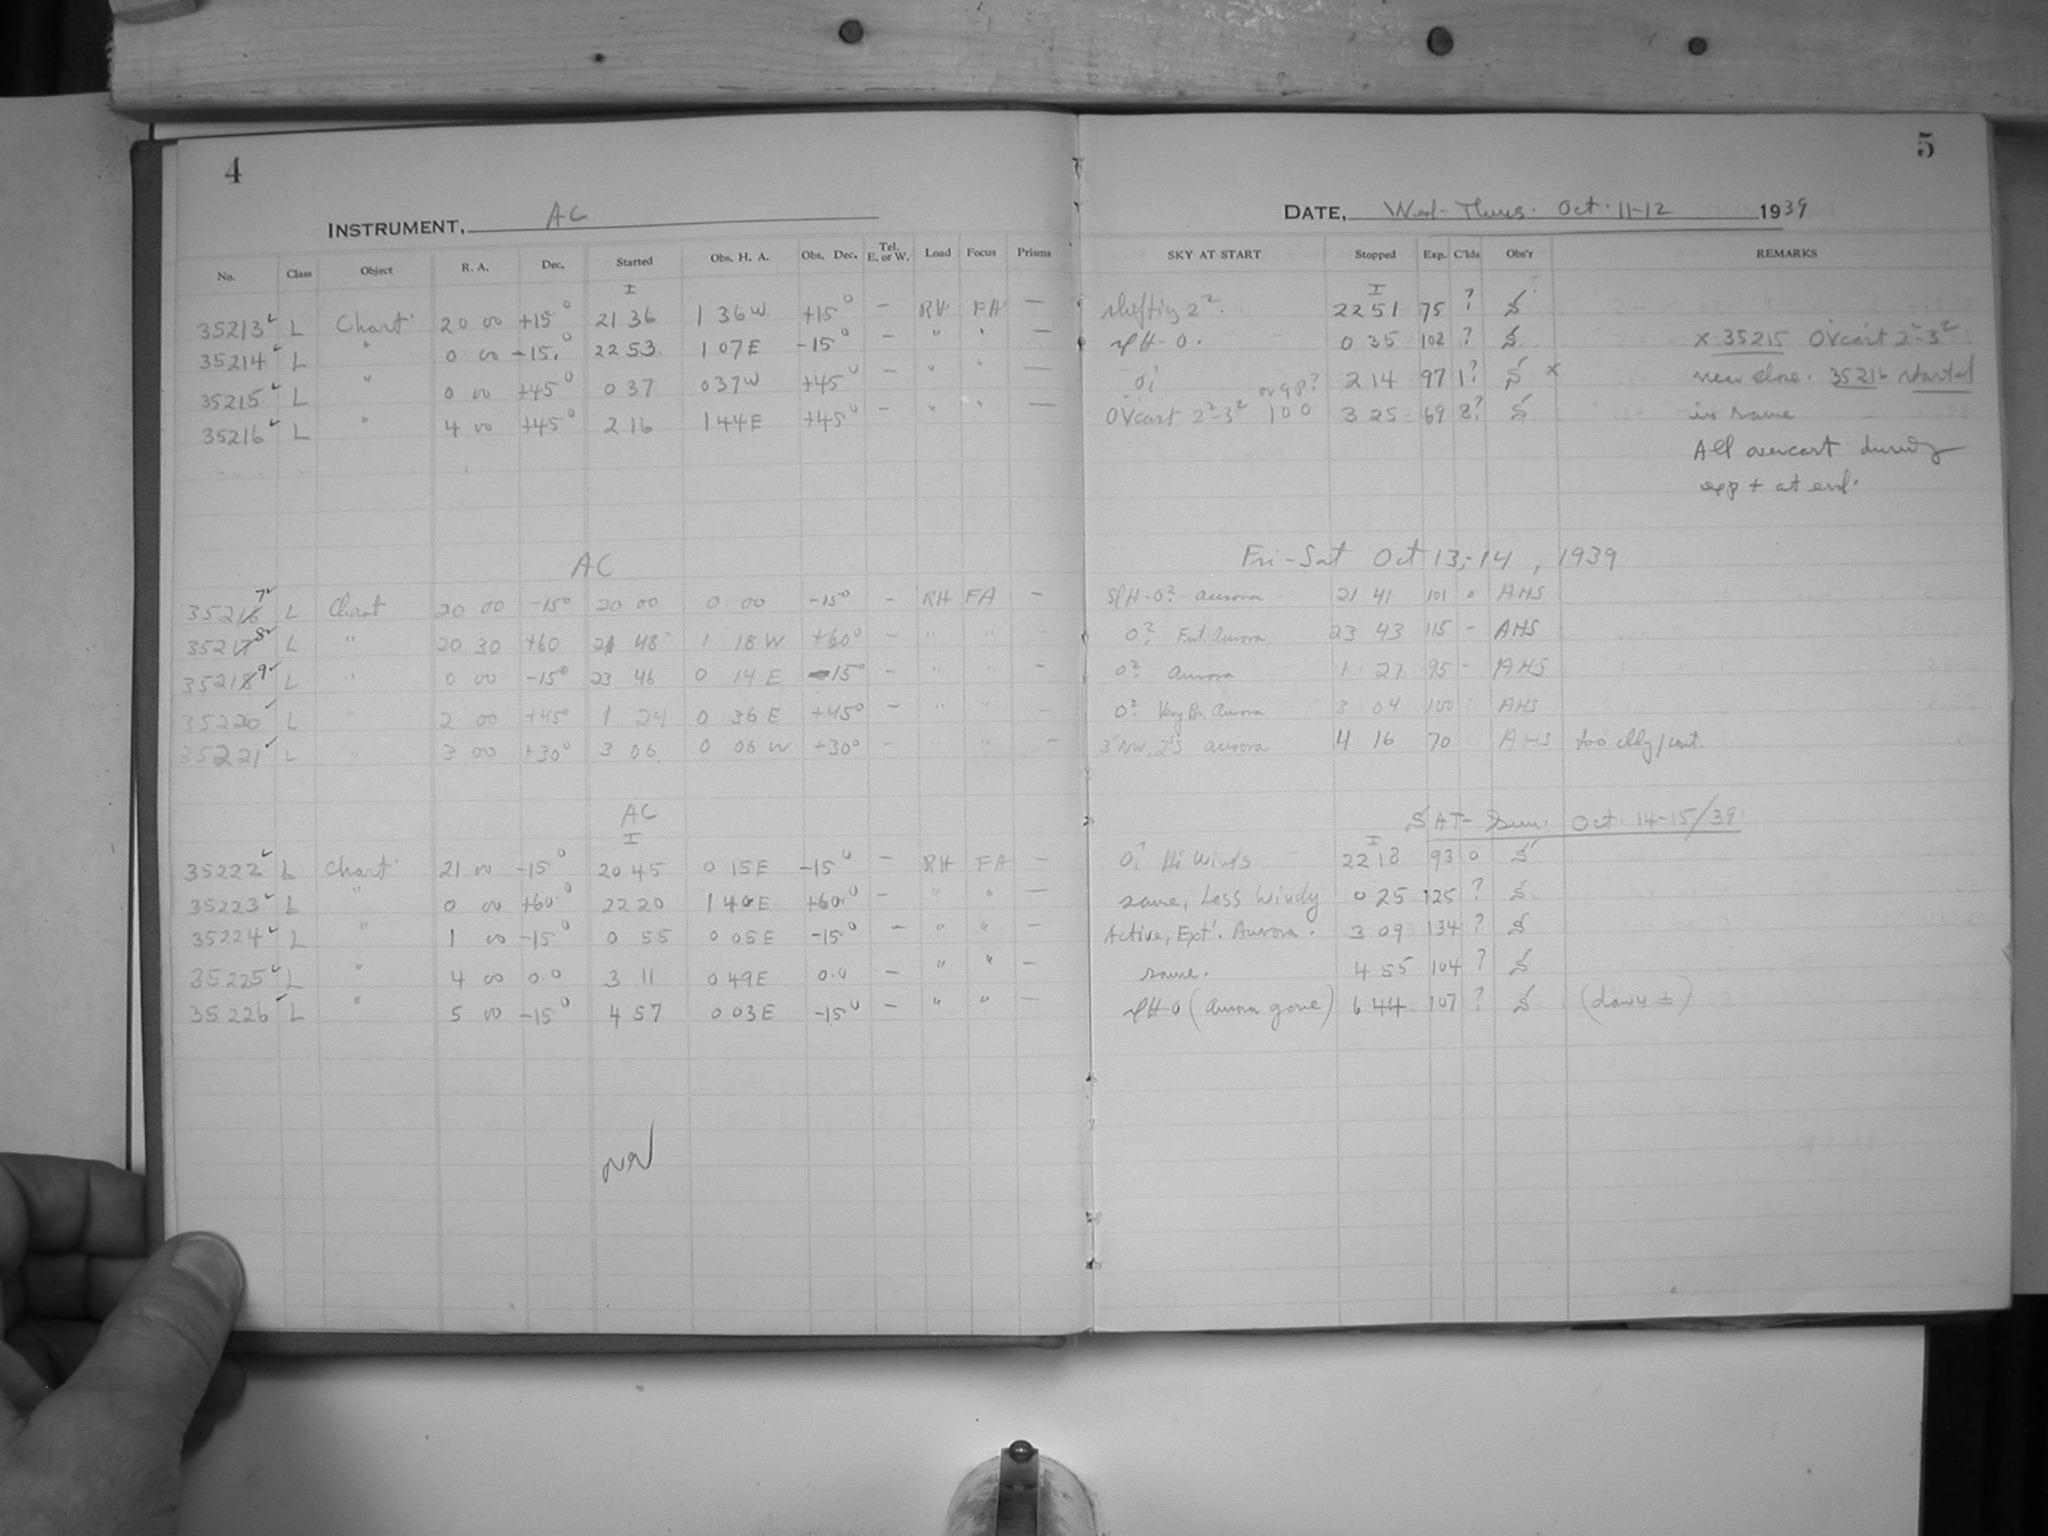 4
INSTRUMENT, AC
No. Class Object R. A. Dec. Started Obs. H. A. Obs. Dec. Tel. E. or W. Load Focus Prisms
I
35213 L Chart 20 00 +15° 21 36 1 36 W +15° - RH FA -
35214 L " 0 00 -15° 22 53 1 07 E -15° - " " -
35215 L " 0 00 +45° 0 37 0 37 W +45° - " " -
35216 L " 4 00 +45° 2 16 1 44 E +45° - " " -
AC
35217 L Chart 20 00 -15° 20 00 0 00 -15° - RH FA -
35218 L " 20 30 +60 21 48 1 18 W +60° - " " -
35219 L " 0 00 -15° 23 46 0 14 E -15° - " " -
35220 L " 2 00 +45° 1 24 0 36 E +45° - " " -
35221 L " 3 00 +30° 3 06 0 06 W +30° - " " -
AC
I
35222 L Chart 21 00 -15° 20 45 0 15 E -15° - RH FA -
35223 L " 0 00 +60° 22 20 1 40 E +60° - " " -
35224 L " 1 00 -15° 0 55 0 05 E -15° - " " -
35225 L " 4 00 0.0 3 11 0 49 E 0.0 - " " -
35226 L " 5 00 -15° 4 57 0 03 E -15° - " " -
5
DATE, Wed-Thurs. Oct. 11-12 1939
SKY AT START Stopped Exp. C'lds Obs'r REMARKS
I
shifting 2² 22 51 75 ? S
spH-0. 0 35 102 ? S x 35215 OVcast 2²-3²
0? 2 14 97 1? S x near close. 35216 started
OVcast 2²-3² 100 or 9p? 3 25 69 8? S in same
All overcast during
exp + at end.
Fri-Sat Oct 13-14, 1939
SpH-0? aurora 21 41 101 0 AHS
0? Fnt. Aurora 23 43 115 - AHS
0? Aurora 1 21 95 - AHS
0? Very Br. Aurora 3 04 100 AHS
3 NW, 2 S aurora 4 16 70 AHS too cldy/cont.
SAT-Sun. Oct. 14-15/39.
I
0? Hi Winds 22 18 93 0 S
same, Less Windy 0 25 125 ? S
Active, Ext. Aurora. 3 09 134 ? S
same. 4 55 104 ? S
spH-0 (Aurora gone) 6 44 107 ? S (dawn ±)